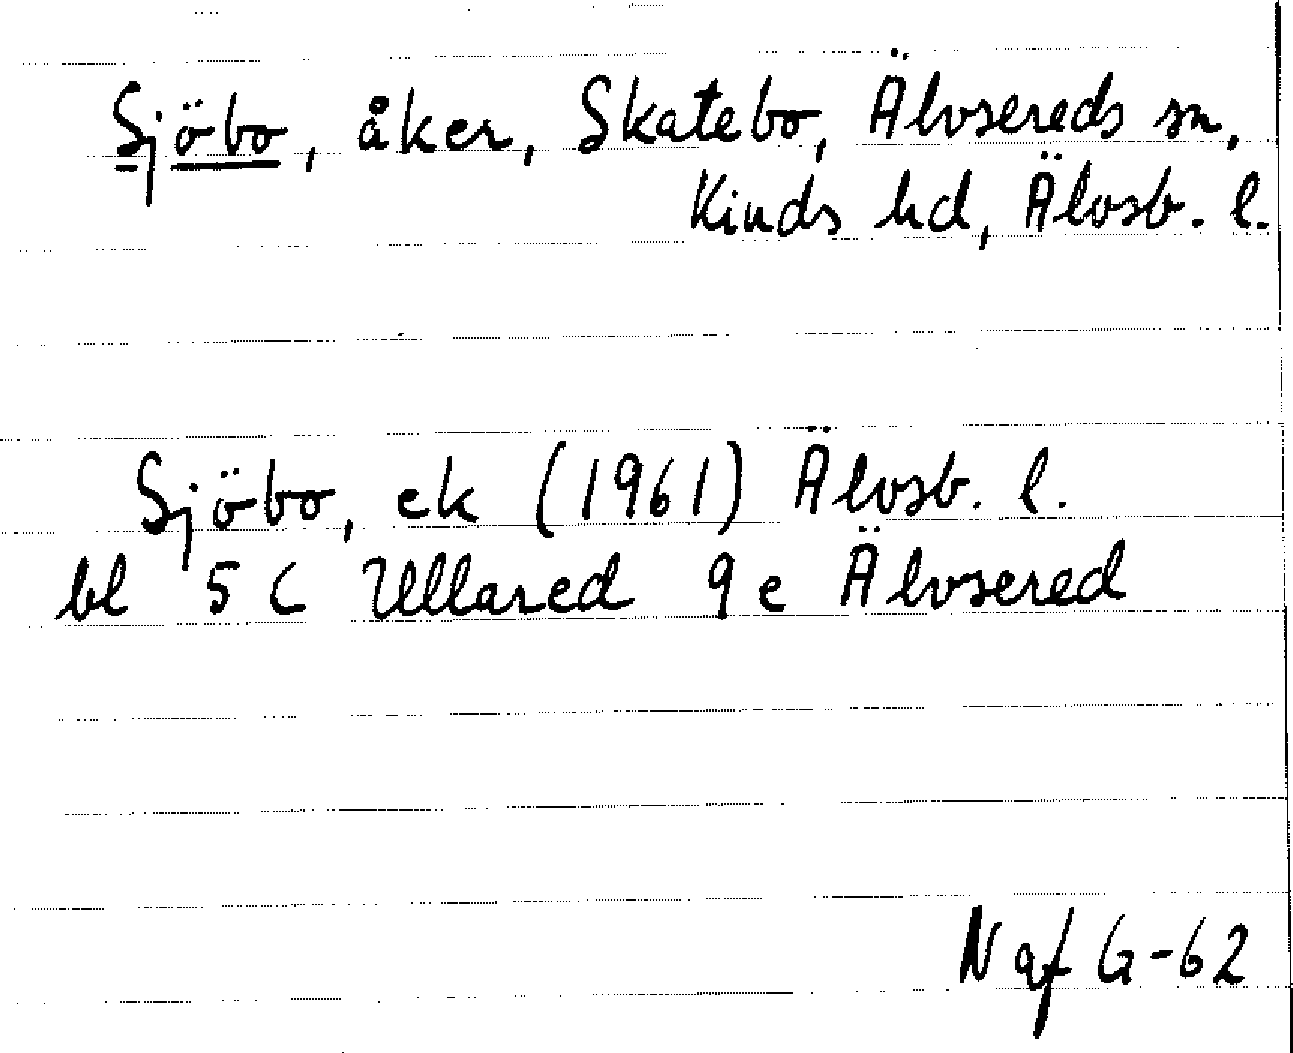 Sjöbo, åker, Skatebo, Älvsereds sn,
Kinds hd, Älvsb. l.
Sjöbo, ek (1961) Älvsb. l.
bl 5 C Ullared 9 e Älvsered
N af G-62